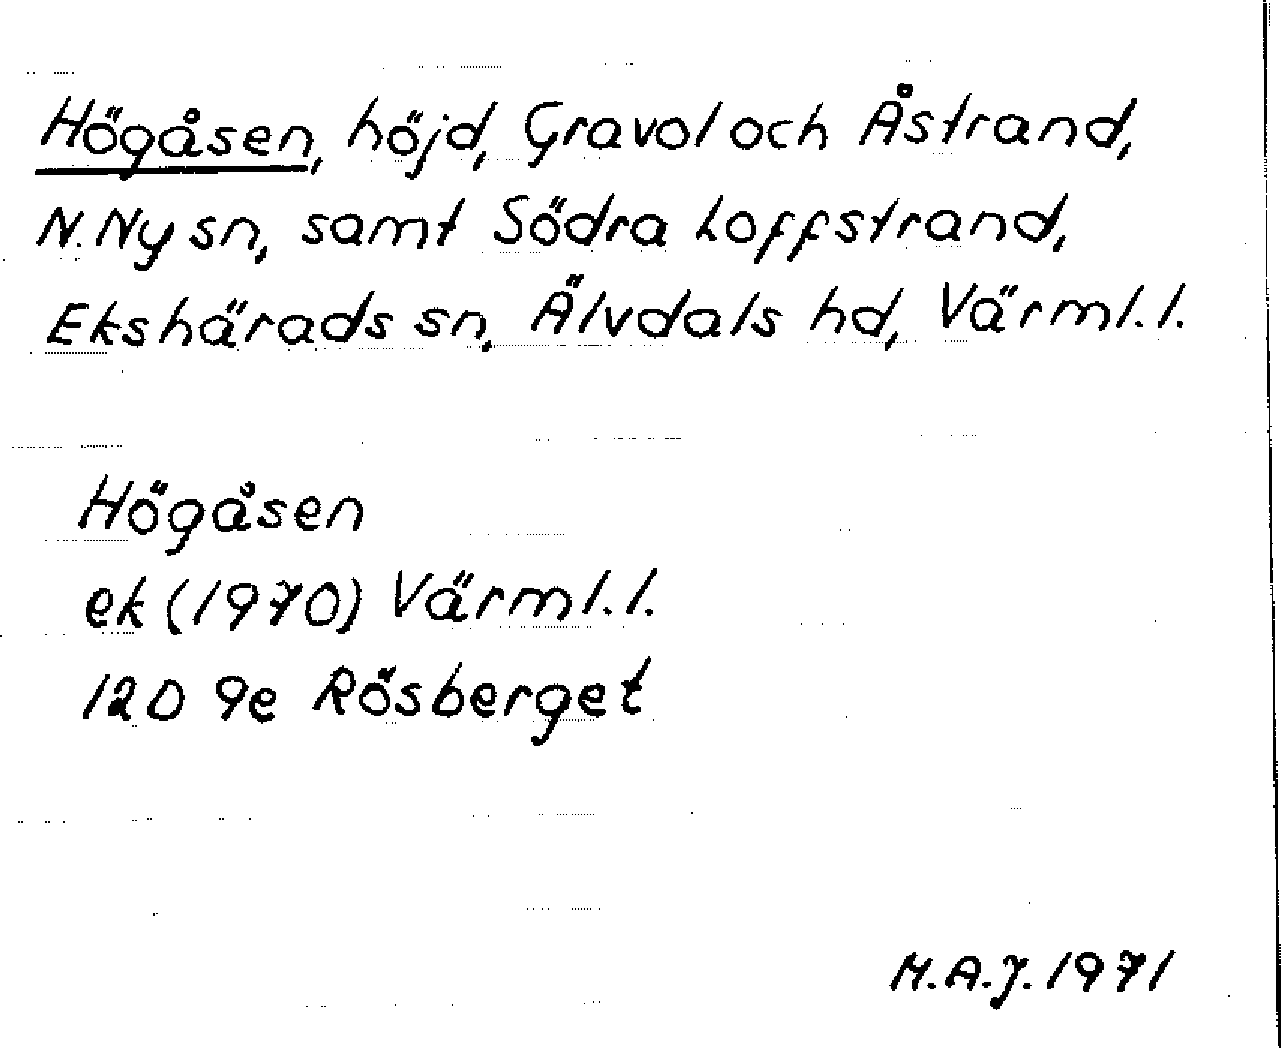 Högåsen, höjd, Gravol och Åstrand,
N. Ny sn, samt Södra Loffstrand,
Ekshärads sn, Älvdals hd, Värml. l.
Högåsen
ek (1970) Värml. l.
12D 9e Rösberget
M.A.J. 1971